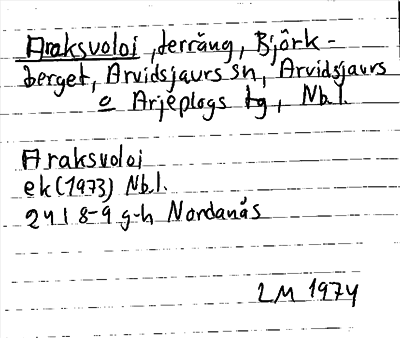 Araksvoloj, terräng, Björk-
berget, Arvidsjaurs sn, Arvidsjaurs
o Arjeplogs tg, Nb.l.
Araksvoloj
ek (1973) Nb.l.
24I 8-9 g-h Nordanås
LM 1974